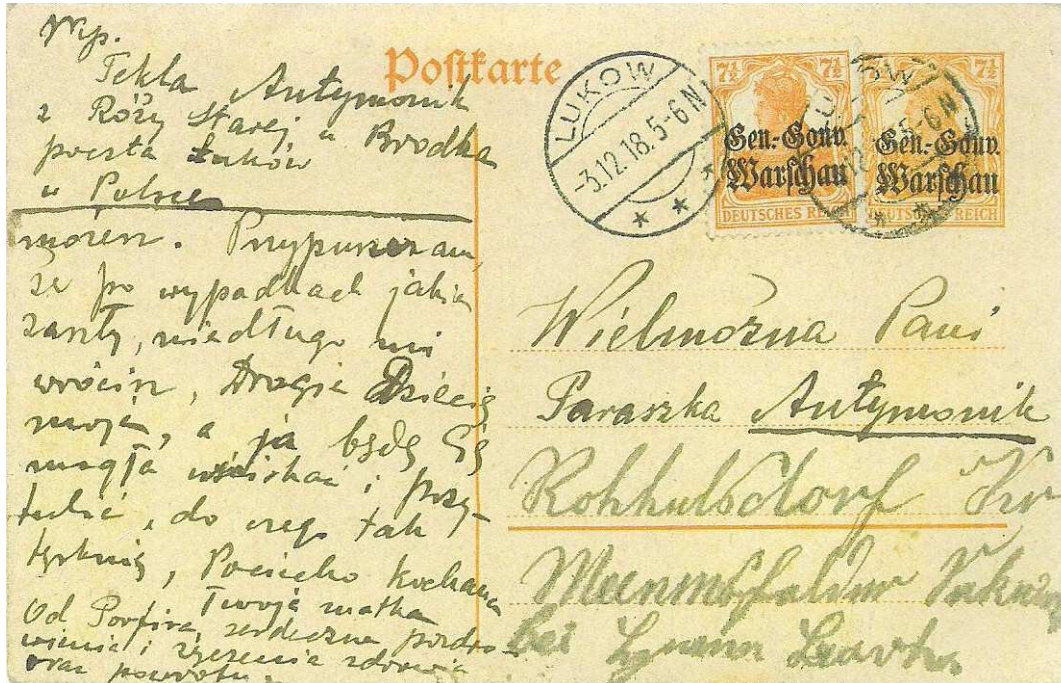 Wp.
Tekla Antymonik
z Róży Starej u Brodka
poczta Łuków
w Polsce
możesz. Przypuszczam,
że po wypadkach jakie
zaszły, niedługo mi
wrócisz, Drogie Dziecię
moje, a ja będę Cię
mogła uściskać i przy-
tulić, do czego tak
tęsknię, Pociecho kochana
Twoja matka
Od Porfira, serdeczne pozdro-
wienia i życzenia zdrowia
oraz powrotu.
Postkarte
LUKOW
-3.12.18.5-6N
7½ 7½
Gen.-Gouv.
Warschau
DEUTSCHES REICH
7½ 7½
Gen.-Gouv.
Warschau
DEUTSCHES REICH
Wielmożna Pani
Paraszka Antymonik
Kr
bei